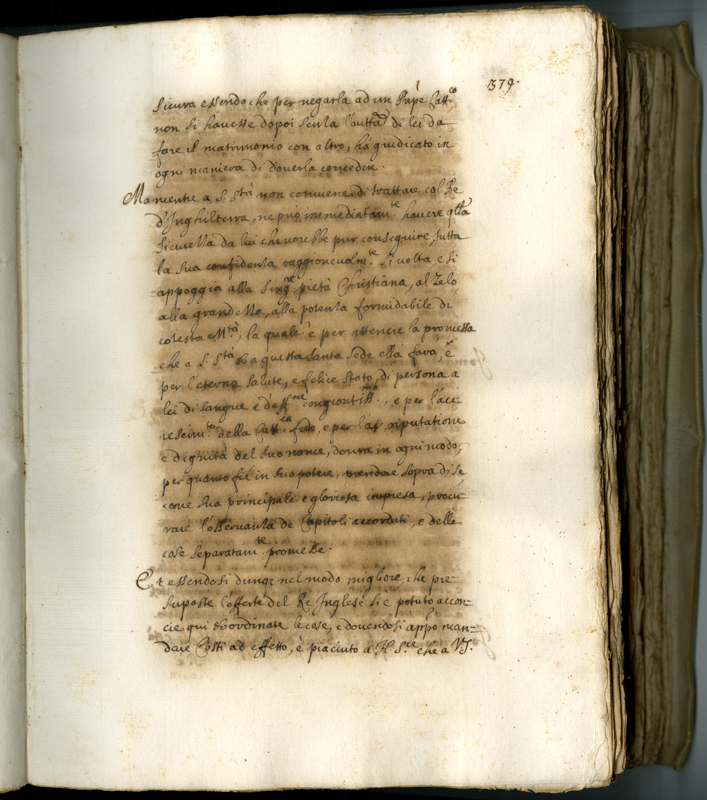 379.
sicura essendo che per negarla ad un Prīpe Catt.co
non si havesse dopoi senza l'autt.tà di lei da
fare il matrimonio con altro, ha giudicato in
ogni maniera di doverla concedere.
Ma mentre a S. S.tà non conviene di trattare col Re
d'Inghilterra, ne può immediatam.te havere q.lla
sicurezza da lui che vorebbe pur conseguire, tutta
la sua confidenza raggionevolm.te si volta, e si
appoggia alla sing.re pietà Christiana, al Zelo,
alla grandezza, alla potenza formidabile di
cotesta M.tà, la quale è per ottenere la promessa
che e S. S.tà a questa santa sede ella farà, è
per l'eterna salute, e felice stato, di persona a
lei di sangue e d'aff.ne congiontiss., e per l'ac-
rescim.to della Catt.ca fede, e per la riputatione
e dignità del suo nome, dovrà in ogni modo,
per quanto fil in suo potere, prendere sopra di se
come sua principale e gloriosa impresa, procu-
rare l'osservanza de Capitoli accordati, e delle
cose separatam.te promesse.
Et essendosi dunq; nel modo migliore, che pre-
suposte l'offerte del Re Inglese si è potuto accon-
cie qui coordinate le cose, e dovendosi appo man-
dare Costi ad effetto, è piaciuto a N. S.re che a VS.